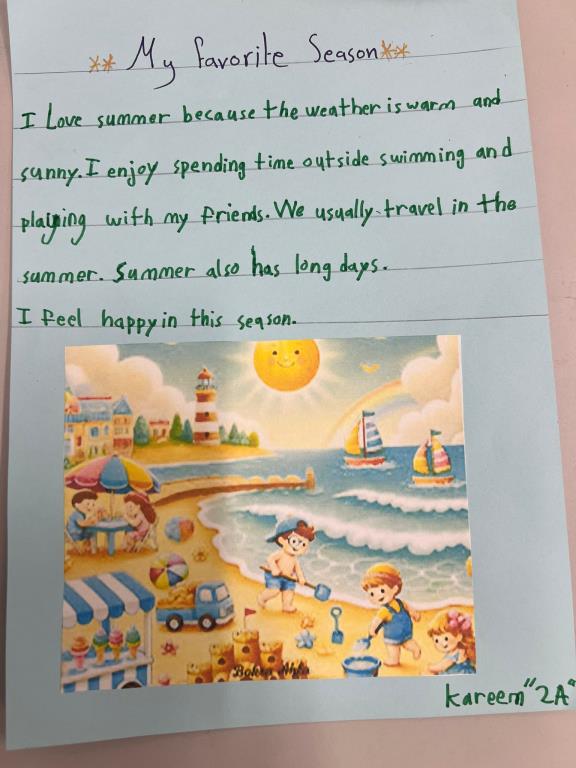 ** My favorite Season **
I Love summer because the weather is warm and
sunny. I enjoy spending time outside swimming and
playing with my friends. We usually travel in the
summer. Summer also has long days.
I feel happy in this season.
Bokra Ahla
kareem "2A"